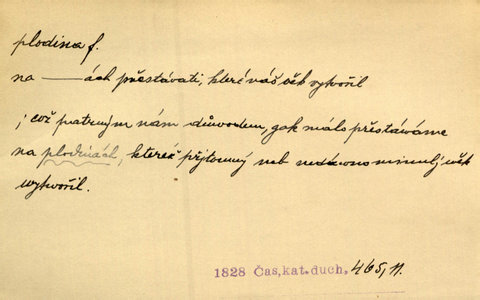 plodina f.
na —— ách přestávati, které náš věk vytvořil
; což patrným nám důvodem, gak málo přestáváme
na plodinách, kteréž přjtomný neb nedáwno minulý wěk
wytvořil.
1828 Čas. kat. duch. 465, 11.